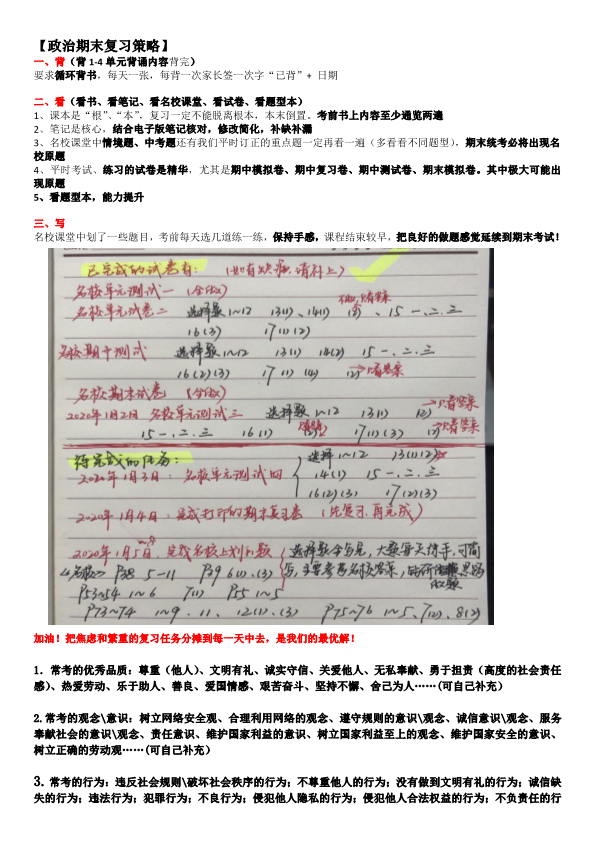 【政治期末复习策略】
一、背（背 1-4 单元背诵内容背完）
要求循环背书，每天一张，每背一次家长签一次字“已背”+ 日期
二、看（看书、看笔记、看名校课堂、看试卷、看题型本）
1、课本是“根”、“本”，复习一定不能脱离根本，本末倒置。考前书上内容至少通览两遍
2、笔记是核心，结合电子版笔记核对，修改简化，补缺补漏
3、名校课堂中情境题、中考题还有我们平时订正的重点题一定再看一遍（多看看不同题型），期末统考必将出现名
校原题
4、平时考试、练习的试卷是精华，尤其是期中模拟卷、期中复习卷、期中测试卷、期末模拟卷。其中极大可能出
现原题
5、看题型本，能力提升
三、写
名校课堂中划了一些题目，考前每天选几道练一练，保持手感，课程结束较早，把良好的做题感觉延续到期末考试！
已完成的试卷有：（如有缺漏，请补上）
名校单元测试一（全做）
名校单元试卷二 选择题1~12 13(1)、14(1) 、15 一、二、三
16(3) 17(1)(2)
名校期中测试 选择题1~12 13(1) 14(2) 15 一、二、三
16(2)(3) 17(1) (4) (2)→只看答案
名校期末试卷（全做）
2020年1月2日 名校单元测试三 选择题1~12 13(1) (2)→只看答案
15 一、二、三 16(1) 17(1)(3) →只看答案
待完成的任务：
2020年1月3日：名校单元测试四 选择1~12 13(1)(2)
14(1) 15 一、二、三
16(2)(3) 17(2)(3)
2020年1月4日：完成打印的期末复习卷（先复习，再完成）
2020年1月5日 完成名校上划的题 选择题全写，大题每天练手，可简
《名校》 P38 5-11 P39 6(1)、(3) 写，主要参考名校答案，
P53~54 1~6 7(1) P55 1~5
P73~74 1~9、11、12(1)、(3) P75~76 1~5、7(2)、8(2)
加油！把焦虑和繁重的复习任务分摊到每一天中去，是我们的最优解！
1．常考的优秀品质：尊重（他人）、文明有礼、诚实守信、关爱他人、无私奉献、勇于担责（高度的社会责任
感）、热爱劳动、乐于助人、善良、爱国情感、艰苦奋斗、坚持不懈、舍己为人……(可自己补充）
2.常考的观念\意识：树立网络安全观、合理利用网络的观念、遵守规则的意识\观念、诚信意识\观念、服务
奉献社会的意识\观念、责任意识、维护国家利益的意识、树立国家利益至上的观念、维护国家安全的意识、
树立正确的劳动观……(可自己补充）
3．常考的行为：违反社会规则\破坏社会秩序的行为；不尊重他人的行为；没有做到文明有礼的行为；诚信缺
失的行为；违法行为；犯罪行为；不良行为；侵犯他人隐私的行为；侵犯他人合法权益的行为；不负责任的行